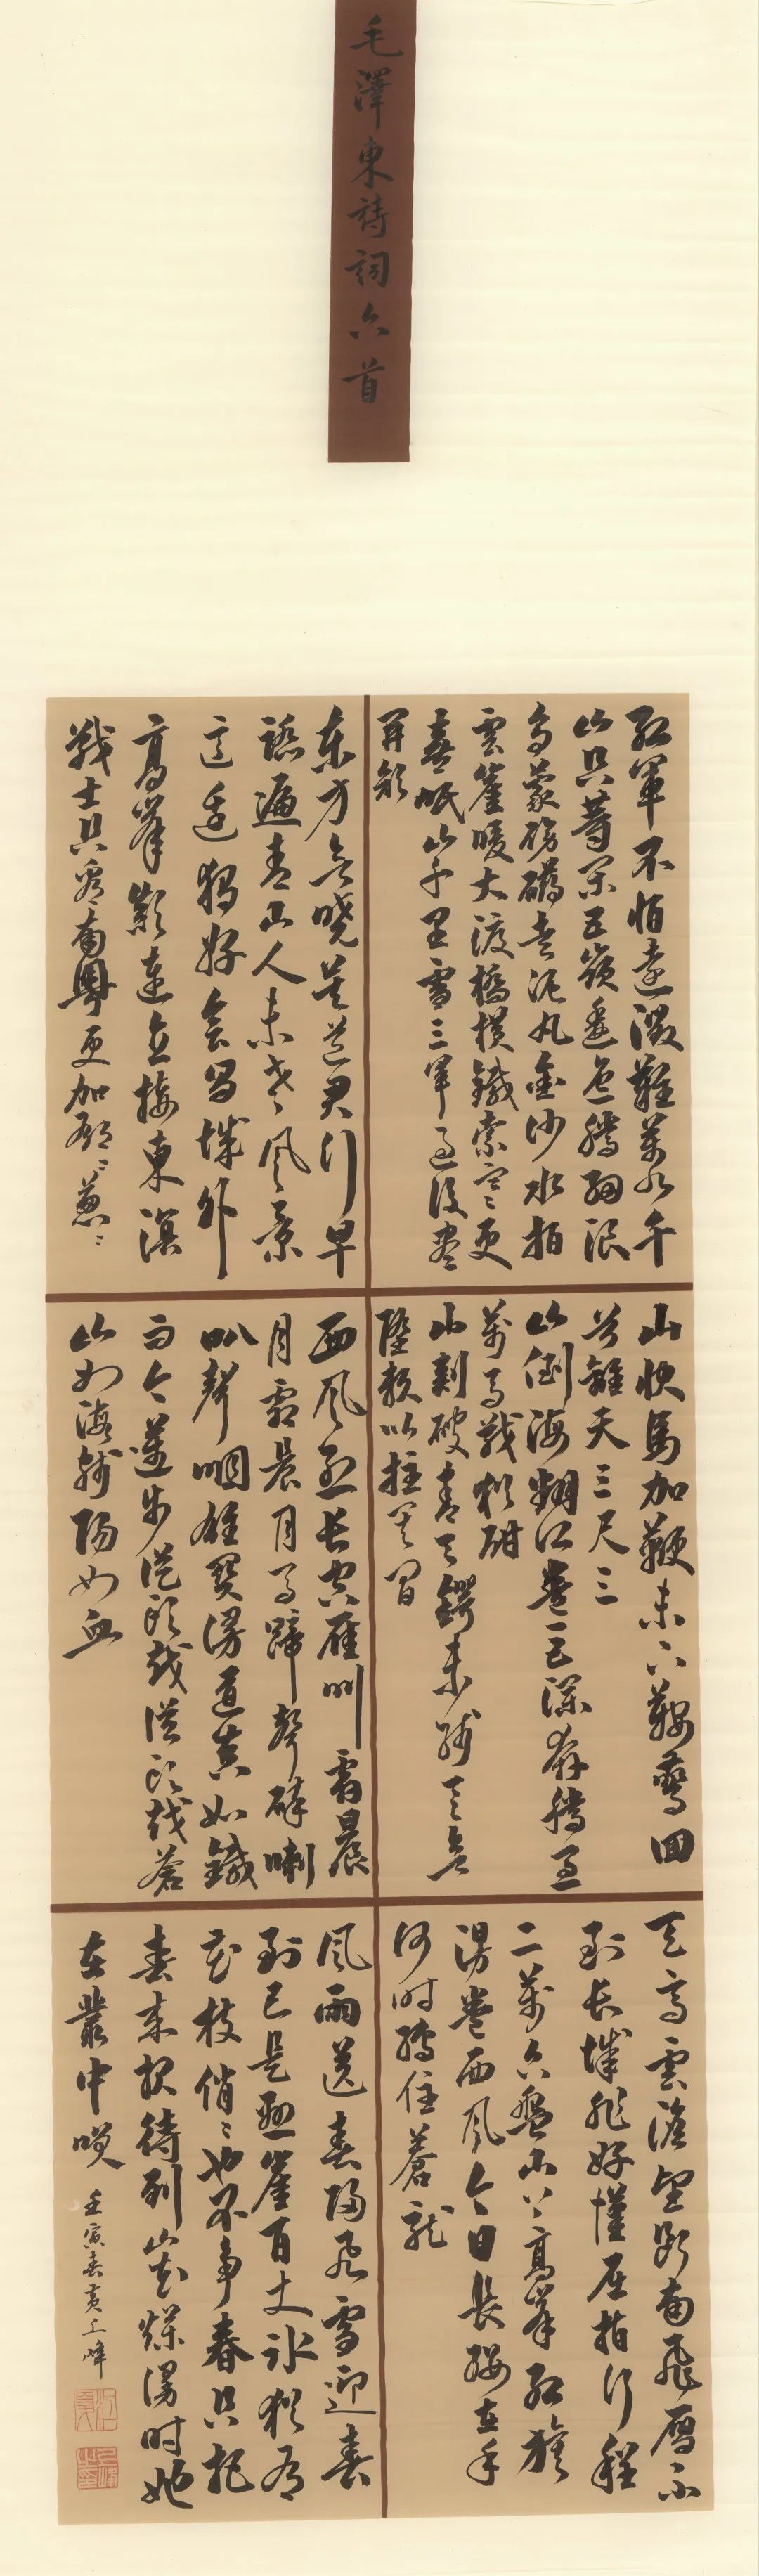 毛澤東詩詞六首
紅軍不怕遠征難萬水千
山只等閑五嶺逶迤騰細浪
烏蒙磅礴走泥丸金沙水拍
雲崖暖大渡橋橫鐵索寒更
喜岷山千里雪三軍過後盡
開顏
东方欲曉莫道君行早
踏遍青山人未老風景
這邊獨好會昌城外
高峯顛連直接東溟
戰士指看南粵更加郁〻蔥〻
山快馬加鞭未下鞍驚回
首離天三尺三
山倒海翻江卷巨瀾奔騰急
萬馬戰猶酣
山刺破青天鍔未殘天欲
墮賴以拄其間
西風烈長空雁叫霜晨
月霜晨月馬蹄聲碎喇
叭聲咽雄關漫道真如鐵
而今邁步從頭越從頭越蒼
山如海殘陽如血
天高雲淡望斷南飛雁不
到長城非好漢屈指行程
二萬六盤山上高峯紅旗
漫卷西風今日長纓在手
何時縛住蒼龍
風雨送春歸飛雪迎春
到已是懸崖百丈冰猶有
花枝俏〻也不爭春只把
春來報待到山花爛漫時她
在叢中笑
壬寅春黃上峰